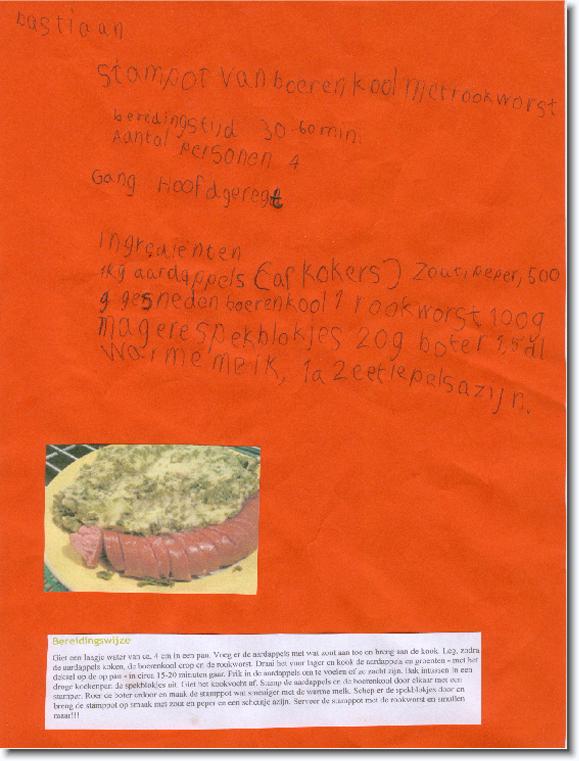 bastiaan
stampot van boerenkool met rookworst
beredingstijd 30-60 min.
Aantal personen 4
Gang Hoofdgeregt
ingrediënten
1kg aardappels (af kokers) zout, peper, 500
g gesneden boerenkool 1 rookworst 100g
magere spekblokjes 20g boter 1,5 dl
warme melk, 1 a 2 eetlepels azijn.
Bereidingswijze
Giet een laagje water van ca. 4 cm in een pan. Voeg er de aardappels met wat zout aan toe en breng aan de kook. Leg, zodra
de aardappels koken, de boerenkool erop en de rookworst. Draai het vuur lager en kook de aardappels en groenten - met het
deksel op de op pan - in circa 15-20 minuten gaar. Prik in de aardappels om te voelen of ze zacht zijn. Bak intussen in een
droge koekenpan de spekblokjes uit. Giet het kookvocht af. Stamp de aardappels en de boerenkool door elkaar met een
stamper. Roer de boter erdoor en maak de stamppot wat smeuïger met de warme melk. Schep er de spekblokjes door en
breng de stamppot op smaak met zout en peper en een scheutje azijn. Serveer de stamppot met de rookworst en smullen
maar!!!